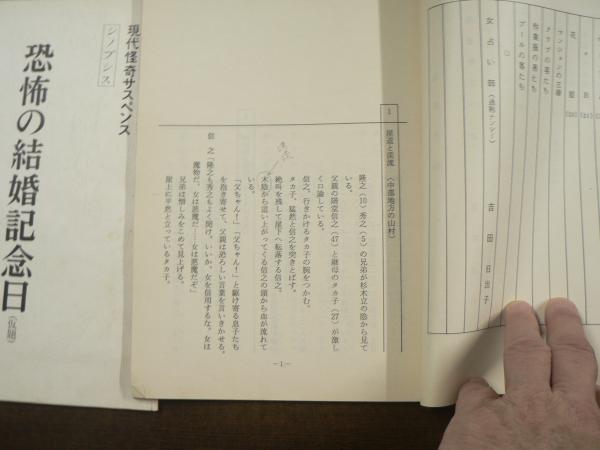 花圃
マンションの三階
クラブの客たち
作業服の男たち
プールの客たち
女占い師（通称ナンシー）　吉田日出子
1　崖道と渓流（中部地方の山村）
隆之（10）秀之（5）の兄弟が杉木立の陰から見て
いる。
父親の階堂信之（47）と継母のタカ子（27）が激し
く口論している。
信之、行きかけるタカ子の腕をつかむ。
タカ子、猛然と信之を突きとばす。
絶叫を残して崖下へ転落する信之。
木陰から這い上がってくる信之の頭から血が流れて
いる。
「父ちゃん！」「父ちゃん！」と駆け寄る息子たち
を抱き寄せて、父親は恐ろしい言葉を言いきかせる。
信之「隆之も秀之もよく聞け。いいか、女を信用するな。女は
魔物だ。女は悪魔だ……女は悪魔だぞ」
兄弟は憎しみをこめて見上げる。
崖上に平然と立っているタカ子。
—1—
現代怪奇サスペンス
シノプシス
恐怖の結婚記念日（仮題）